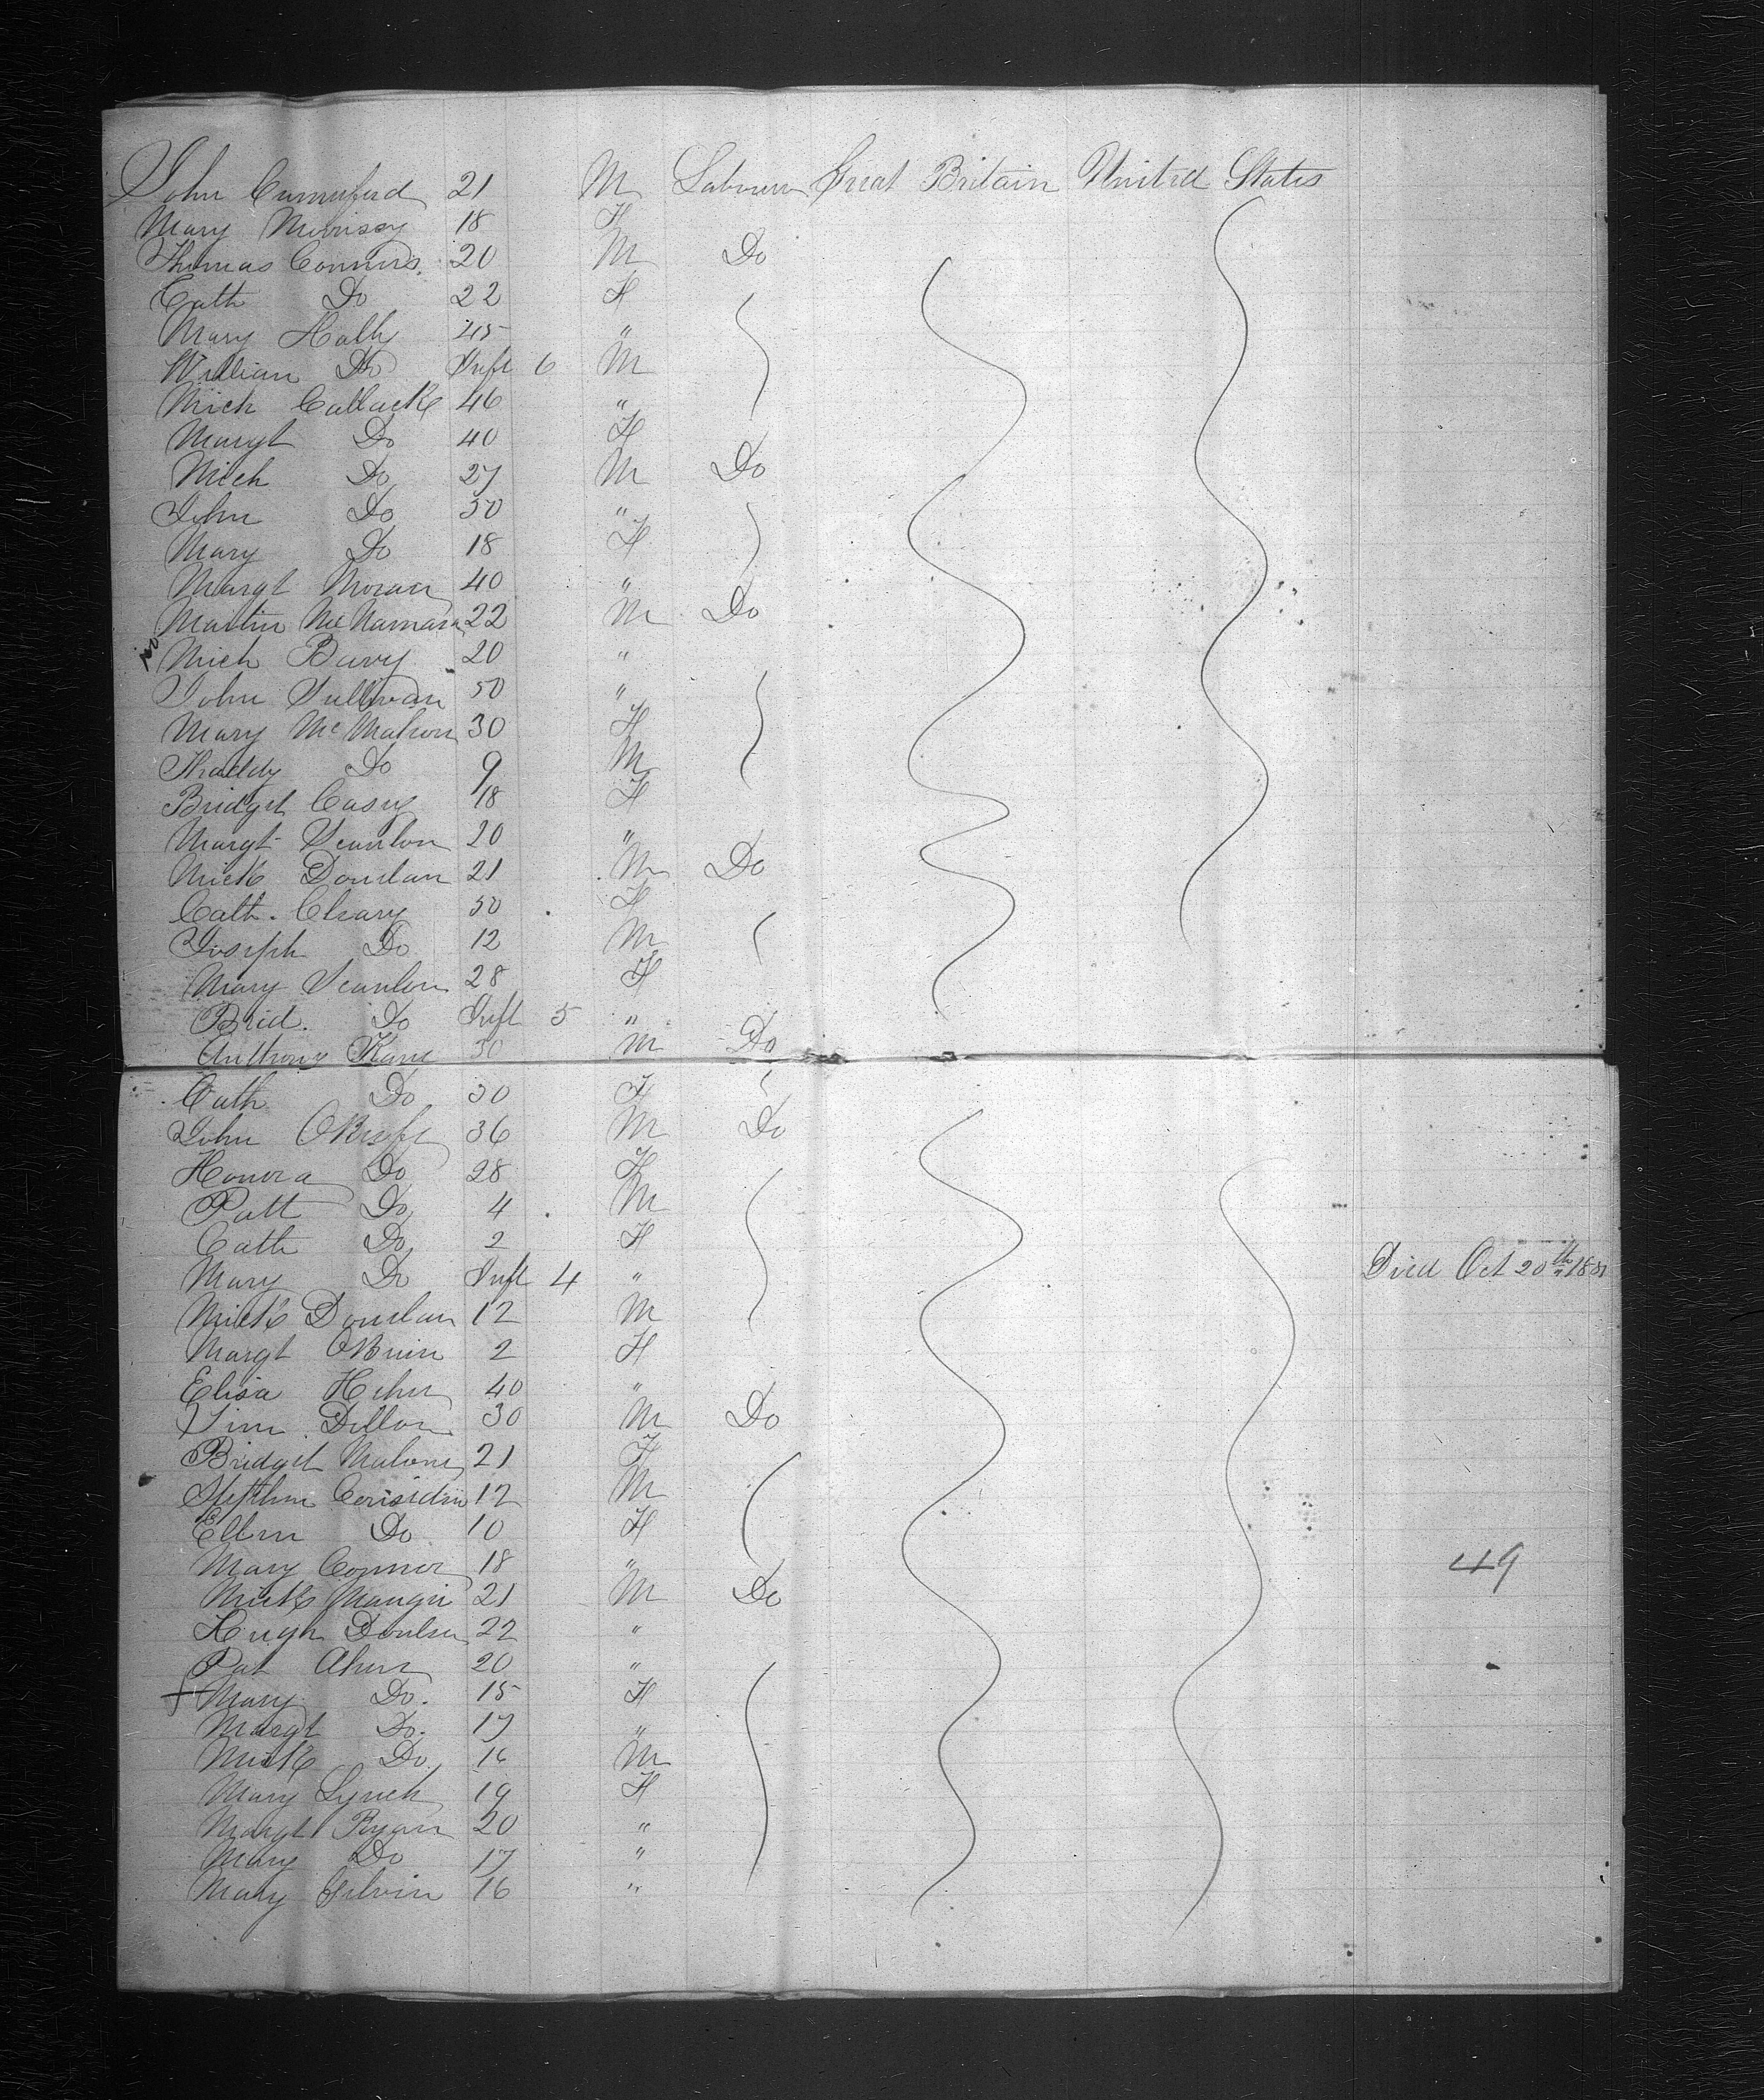 John Cumerford 21 M Labourer Great Britain United States
Mary Morrissy 18 F
Thomas Connors 20 M Do
Cath Do 22 F
Mary Hally 45 "
William Do Inft 6 M
Mich 46 "
Margt Do 40 F
Mich Do 27 M Do
John Do 30 "
Mary Do 18 F
Margt Moran 40 "
Martin McNamara 22 M Do
No Mich Barry 20 "
John Sullivan 50 "
Mary McMahon 30 F
Thaddy Do 9 M
Bridget Casey 18 F
Margt Scanlon 20 "
Mick Donelan 21 M Do
Cath. Cleary 50 F
Joseph Do 12 M
Mary Scanlon 28 F
Brid. Do Inft 5 "
Anthony Kane 30 M Do
Cath Do 30 F
John OKeefe 36 M Do
Honora Do 28 F
Patt Do 4 M
Cath Do 2 F
Mary Do Inft 4 " Died Oct 20th
Mick Donelan 12 M
Margt OBrien 2 F
Elisa Hehir 40 "
Tim Dillon 30 M Do
Bridget Malone 21 F
Stephen 12 M
Ellen Do 10 F
Mary Connor 18 " 49
Mick Mangin 21 M Do
Hugh 22 "
Pat Ahern 20 "
Mary Do. 15 F
Margt Do. 17 "
Mick Do 16 M
Mary Lynch 19 F
Margt Ryan 20 "
Mary Do 17 "
Mary Gilvin 16 "